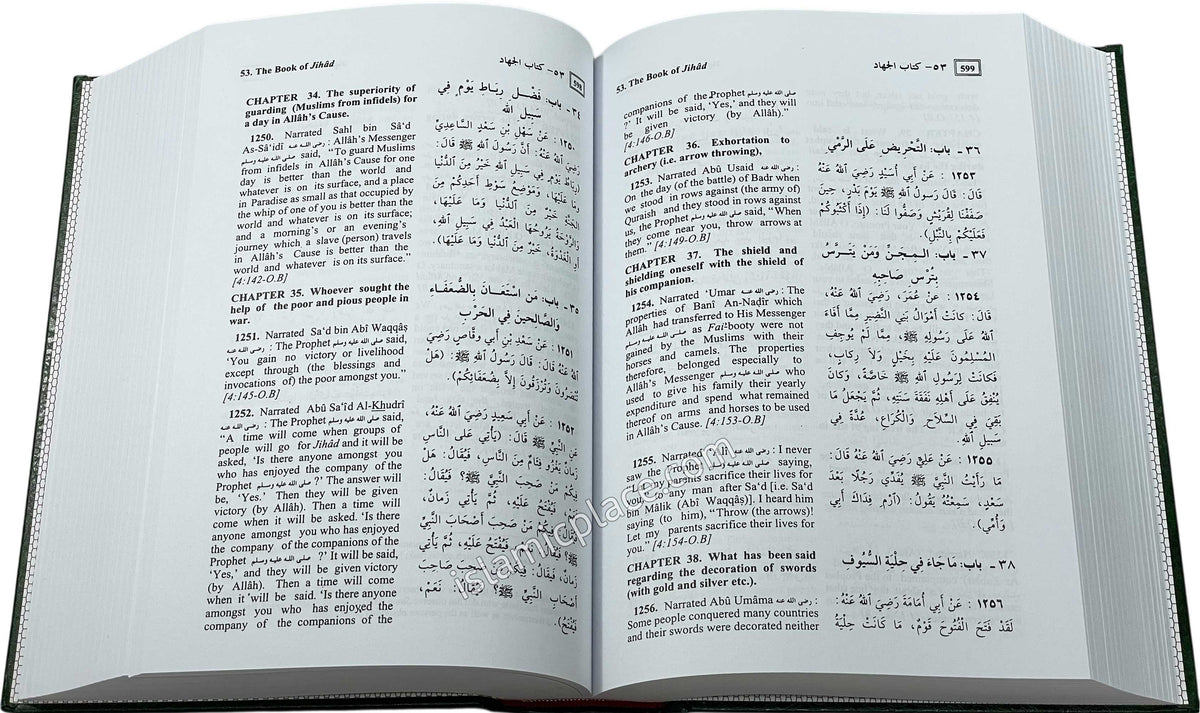 53. The Book of Jihâd
٥٣- كتاب الجهاد
598
CHAPTER 34. The superiority of
guarding (Muslims from infidels) for
a day in Allâh's Cause.
1250. Narrated Sahl bin Sâ'd
As-Sâ'idî رضي الله عنه : Allâh's Messenger
صلى الله عليه وسلم said, "To guard Muslims
from infidels in Allâh's Cause for one
day is better than the world and
whatever is on its surface, and a place
in Paradise as small as that occupied by
the whip of one of you is better than the
world and whatever is on its surface;
and a morning's or an evening's
journey which a slave (person) travels
in Allâh's Cause is better than the
world and whatever is on its surface."
[4:142-O.B]
CHAPTER 35. Whoever sought the
help of the poor and pious people in
war.
1251. Narrated Sa'd bin Abî Waqqâs
رضي الله عنه : The Prophet صلى الله عليه وسلم said,
'You gain no victory or livelihood
except through (the blessings and
invocations of) the poor amongst you."
[4:145-O.B]
1252. Narrated Abû Sa'îd Al-Khudrî
رضي الله عنه : The Prophet صلى الله عليه وسلم said,
"A time will come when groups of
people will go for Jihâd and it will be
asked, 'Is there anyone amongst you
who has enjoyed the company of the
Prophet صلى الله عليه وسلم ?' The answer will
be, 'Yes.' Then they will be given
victory (by Allah). Then a time will
come when it will be asked. 'Is there
anyone amongst you who has enjoyed
the company of the companions of the
Prophet صلى الله عليه وسلم ?' It will be said,
'Yes,' and they will be given victory
(by Allâh). Then a time will come
when it will be said. 'Is there anyone
amongst you who has enjoyed the
company of the companions of the
٣٤ - باب: فَضْلِ رِبَاطِ يَوْمٍ فِي
سَبِيلِ اللهِ
١٢٥٠ : عَنْ سَهْلِ بْنِ سَعْدٍ السَّاعِدِيِّ
رَضِيَ اللهُ عَنْهُ: أَنَّ رَسُولَ اللهِ ﷺ قَالَ:
(رِبَاطُ يَوْمٍ فِي سَبِيلِ اللهِ خَيْرٌ مِنَ الدُّنْيَا
وَمَا عَلَيْهَا، وَمَوْضِعُ سَوْطِ أَحَدِكُمْ مِنَ
الجَنَّةِ خَيْرٌ مِنَ الدُّنْيَا وَمَا عَلَيْهَا،
وَالرَّوْحَةُ يَرُوحُهَا الْعَبْدُ فِي سَبِيلِ اللهِ،
أَوِ الْغَدْوَةُ، خَيْرٌ مِنَ الدُّنْيَا وَمَا عَلَيْهَا).
٣٥ - باب: مَنِ اسْتَعَانَ بِالضُّعَفَاءِ
وَالصَّالِحِينَ فِي الحَرْبِ
١٢٥١ : عَنْ سَعْدِ بْنِ أَبِي وَقَّاصٍ رَضِيَ
اللهُ عَنْهُ قَالَ: قَالَ رَسُولُ اللهِ ﷺ: (هَلْ
تُنْصَرُونَ وَتُرْزَقُونَ إِلاَّ بِضُعَفَائِكُمْ).
١٢٥٢ : عَنْ أَبِي سَعِيدٍ رَضِيَ اللهُ عَنْهُ،
عَنِ النَّبِيِّ ﷺ قَالَ: (يَأْتِي عَلَى النَّاسِ
زَمَانٌ يَغْزُو فِئَامٌ مِنَ النَّاسِ، فَيُقَالُ: هَلْ
فِيكُمْ مَنْ صَحِبَ النَّبِيَّ ﷺ؟ فَيُقَالُ:
نَعَمْ، فَيُفْتَحُ عَلَيْهِ، ثُمَّ يَأْتِي زَمَانٌ،
فَيُقَالُ: فِيكُمْ مَنْ صَحِبَ أَصْحَابَ النَّبِيِّ
ﷺ؟ فَيُقَالُ: نَعَمْ، فَيُفْتَحُ عَلَيْهِ، ثُمَّ يَأْتِي
زَمَانٌ، فَيُقَالُ: فِيكُمْ مَنْ صَحِبَ صَاحِبَ
أَصْحَابِ النَّبِيِّ ﷺ؟ فَيُقَالُ: نَعَمْ،
فَيُفْتَحُ).
53. The Book of Jihâd
٥٣- كتاب الجهاد
599
companions of the Prophet صلى الله عليه وسلم
?' It will be said, 'Yes,' and they will
be given victory (by Allâh)."
[4:146-O.B]
CHAPTER 36. Exhortation to
archery (i.e. arrow throwing),
1253. Narrated Abû Usaid رضي الله عنه :
On the day (of the battle) of Badr when
we stood in rows against (the army of)
Quraish and they stood in rows against
us, the Prophet صلى الله عليه وسلم said, "When
they come near you, throw arrows at
them." [4:149-O.B]
CHAPTER 37. The shield and
shielding oneself with the shield of
his companion.
1254. Narrated 'Umar رضي الله عنه : The
properties of Banî An-Nadîr which
Allâh had transferred to His Messenger
صلى الله عليه وسلم as Fai-booty were not
gained by the Muslims with their
horses and camels. The properties
therefore, belonged especially to
Allâh's Messenger صلى الله عليه وسلم who
used to give his family their yearly
expenditure and spend what remained
thereof on arms and horses to be used
in Allâh's Cause. [4:153-O.B]
1255. Narrated 'Alî رضي الله عنه : I never
saw the Prophet صلى الله عليه وسلم saying,
"Let my parents sacrifice their lives for
you," to any man after Sa'd [i.e. Sa'd
bin Mâlik (Abî Waqqâs)]. I heard him
saying (to him), "Throw (the arrows)!
Let my parents sacrifice their lives for
you." [4:154-O.B]
CHAPTER 38. What has been said
regarding the decoration of swords
(with gold and silver etc.).
1256. Narrated Abû Umâma رضي الله عنه :
Some people conquered many countries
and their swords were decorated neither
٣٦ - باب: التَّحْرِيضِ عَلَى الرَّمْيِ
١٢٥٣ : عَنْ أَبِي أُسَيْدٍ رَضِيَ اللهُ عَنْهُ
قَالَ: قَالَ رَسُولُ اللهِ ﷺ يَوْمَ بَدْرٍ، حِينَ
صَفَفْنَا لِقُرَيْشٍ وَصَفُّوا لَنَا: (إِذَا أَكْثَبُوكُمْ
فَعَلَيْكُمْ بِالنَّبْلِ).
٣٧ - باب: المِجَنِّ وَمَنْ يَتَتَرَّسُ
بِتُرْسِ صَاحِبِهِ
١٢٥٤ : عَنْ عُمَرَ، رَضِيَ اللهُ عَنْهُ،
قَالَ: كَانَتْ أَمْوَالُ بَنِي النَّضِيرِ مِمَّا أَفَاءَ
اللهُ عَلَى رَسُولِهِ ﷺ، مِمَّا لَمْ يُوجِفِ
المُسْلِمُونَ عَلَيْهِ بِخَيْلٍ وَلاَ رِكَابٍ،
فَكَانَتْ لِرَسُولِ اللهِ ﷺ خَاصَّةً، وَكَانَ
يُنْفِقُ عَلَى أَهْلِهِ نَفَقَةَ سَنَتِهِ، ثُمَّ يَجْعَلُ مَا
بَقِيَ فِي السِّلاَحِ وَالْكُرَاعِ، عُدَّةً فِي
سَبِيلِ اللهِ.
١٢٥٥ : عَنْ عَلِيٍّ رَضِيَ اللهُ عَنْهُ قَالَ:
مَا رَأَيْتُ النَّبِيَّ ﷺ يُفَدِّي رَجُلًا بَعْدَ
سَعْدٍ، سَمِعْتُهُ يَقُولُ: (ارْمِ فِدَاكَ أَبِي
وَأُمِّي).
٣٨ - باب: مَا جَاءَ فِي حِلْيَةِ السُّيُوفِ
١٢٥٦ : عَنْ أَبِي أُمَامَةَ رَضِيَ اللهُ عَنْهُ:
لَقَدْ فَتَحَ الْفُتُوحَ قَوْمٌ، مَا كَانَتْ حِلْيَةُ
islamicplace.com